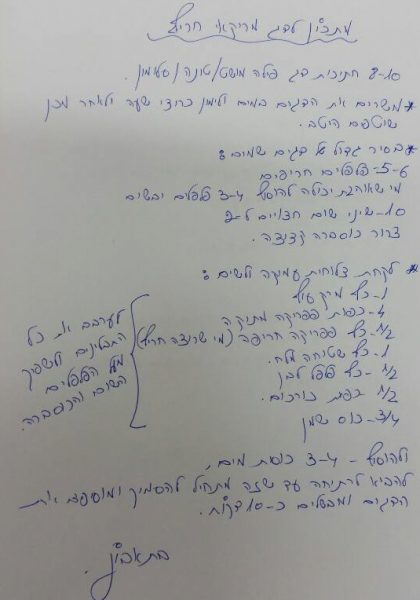 מתכון לדג מרוקאי חריף
8-10 חתיכות דג פילה מושט/טונה/סלומון.
* משרים את הדגים במים ולימון כחצי שעה ולאחר מכן
שוטפים היטב.
* בסיר גדול על דגים שמים:
5-6 פלפלים חריפים
מי שאוהבת יכולה להוסיף 3-4 פלפלים יבשים
10- שיני שום חצויים ל-2
צרור כוסברה קצוצה.
* לקחת צלוחית עמוקה ולשים:
1- כף מרק עוף
4- כפות פפריקה מתוקה
1/2 כף פפריקה חריפה (מי שרוצה חריף)
1- כף שטוחה מלח.
1/2 - כף פלפל לבן
1/2 כפת כורכום.
3/4- כוס שמן
לערבב את כל
התבלינים ולשפוך
מעל הפלפלים
השום והכוסברה.
ולהוסיף - 3-4 כוסות מים,
להביא לרתיחה עד שזה מתחיל להסמיך ומוסיפים את
הדגים ומבשלים כ-10 דקות.
בתאבון.